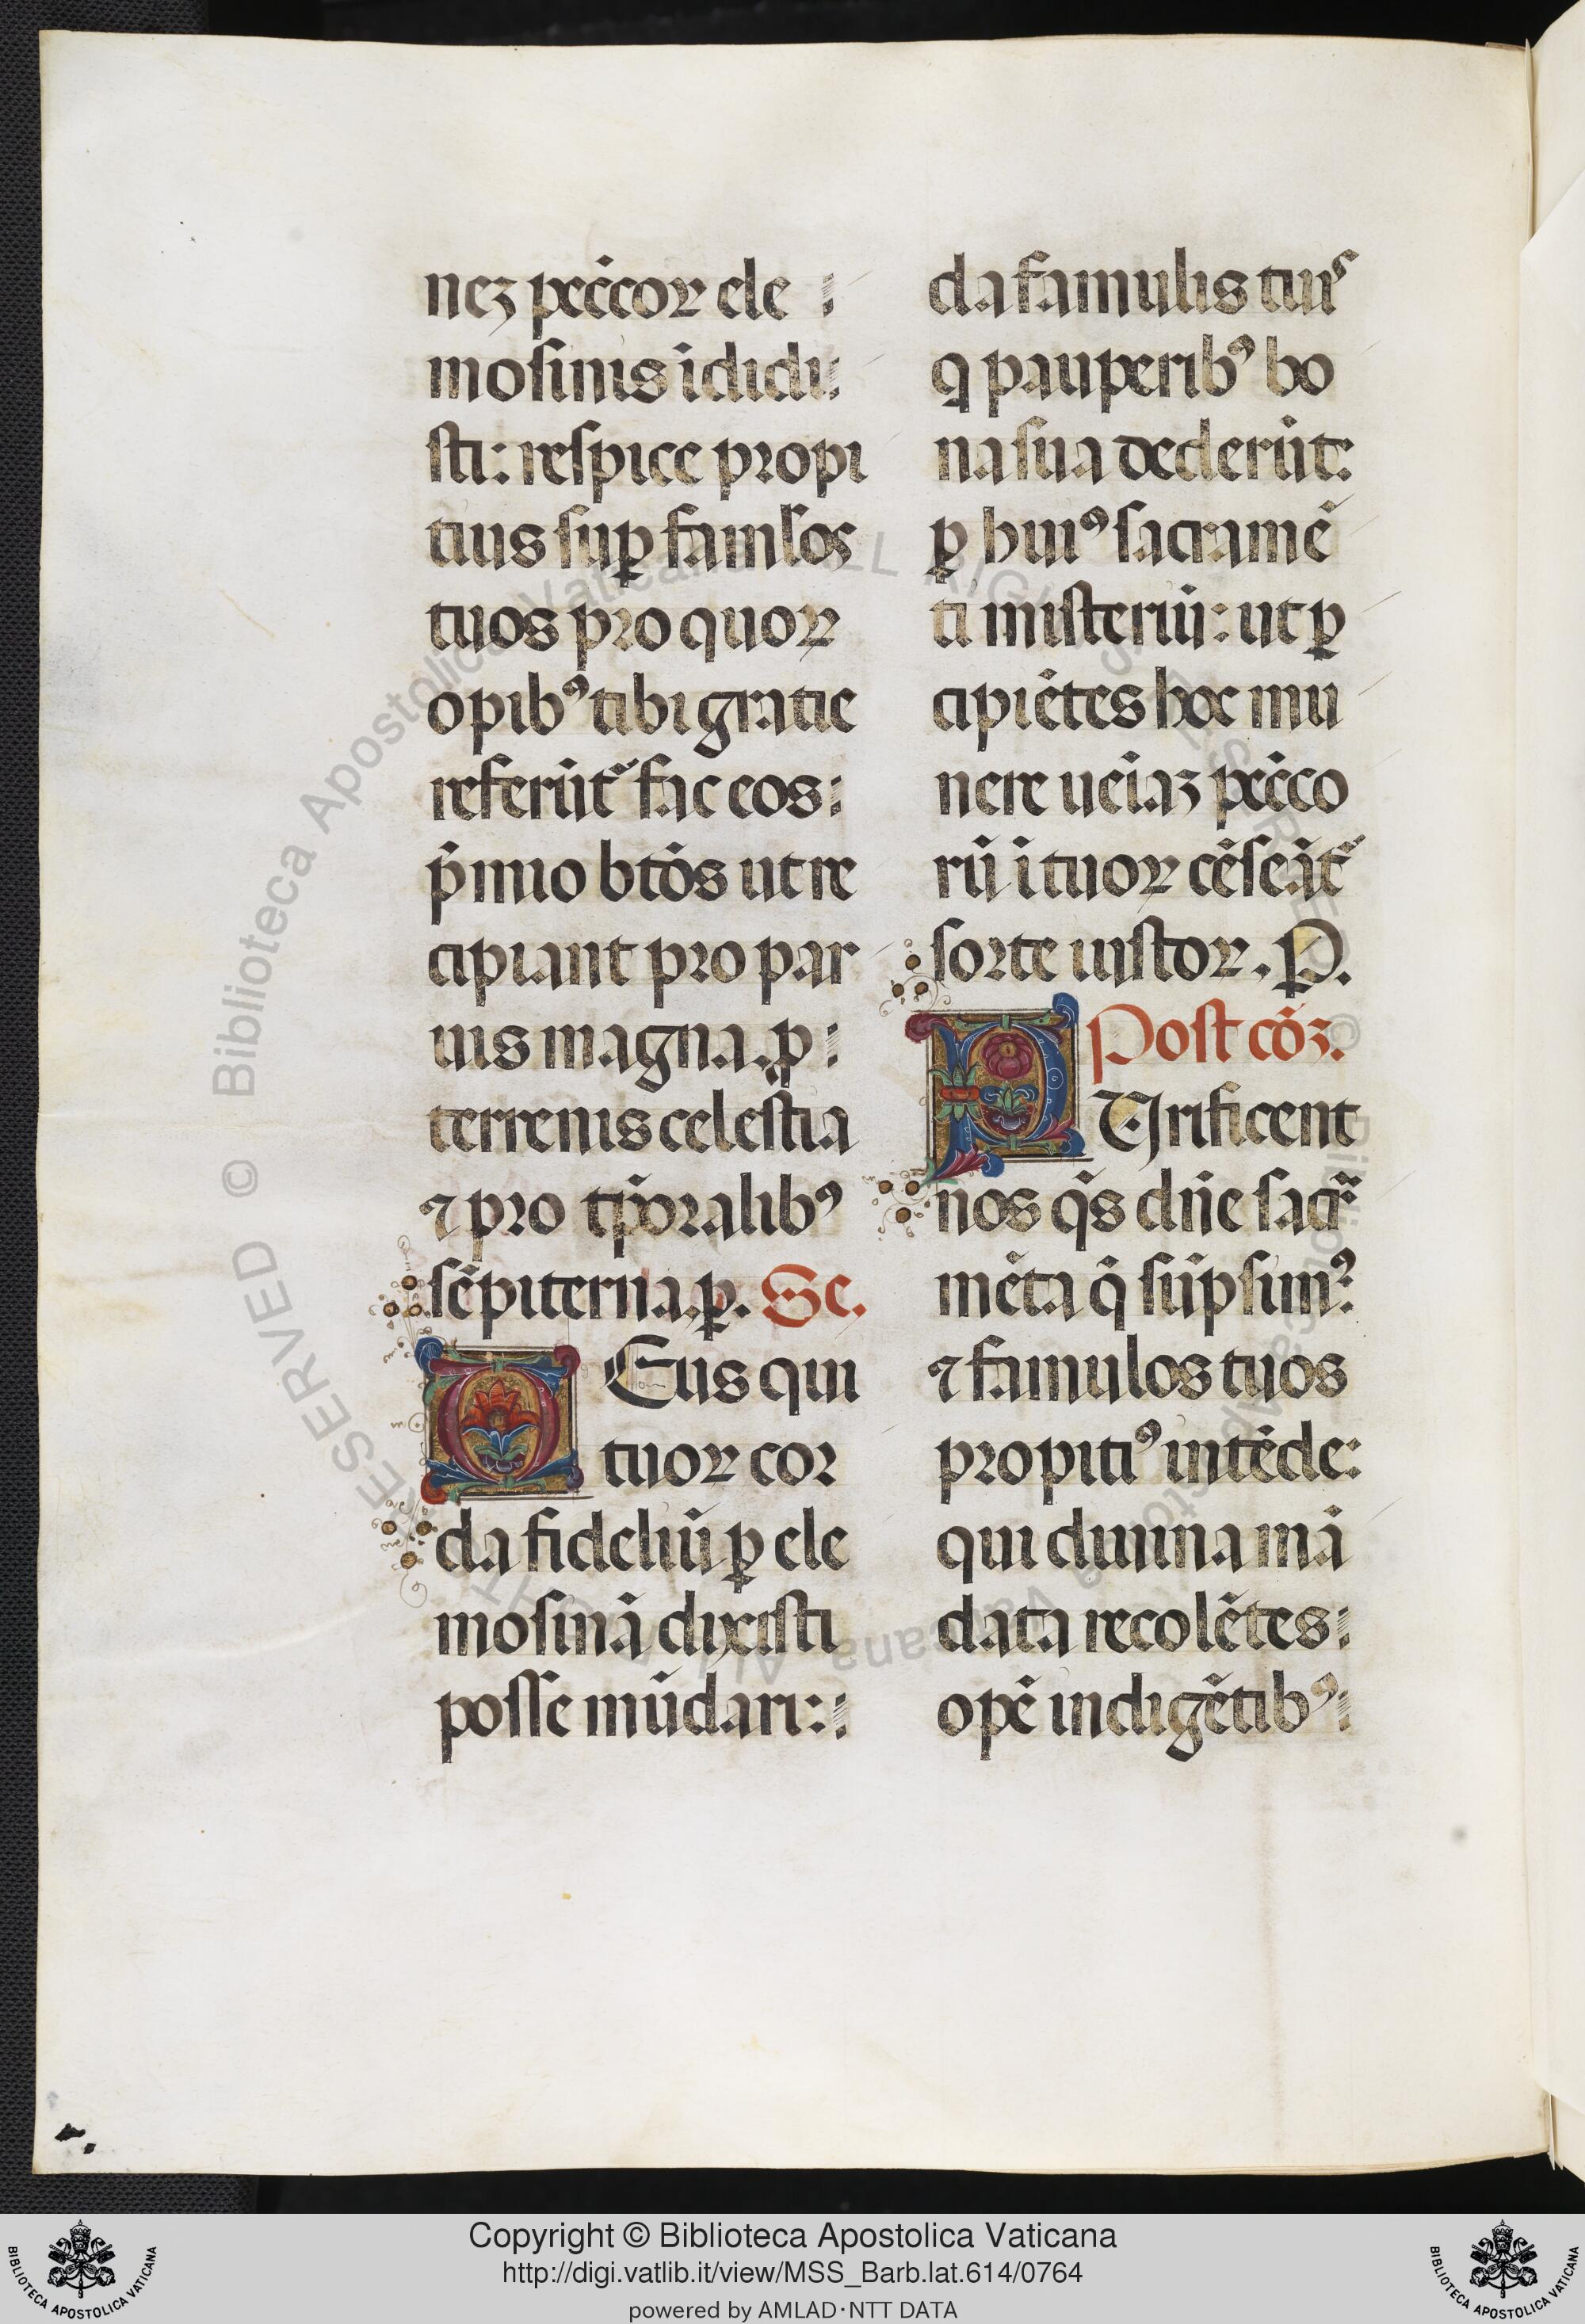 neꝫ pccoꝝ ele
mosinis ī didi
sti: respice propi
tius suꝑ famłos
tuos pro quoꝝ
opibꝰ tibi gratie
referūt᷑ fac eos:
p̄mio btōs ut re
cipiant pro par
uis magna. ꝓ
terrenis celestia
⁊ pro tp̄oralibꝰ
sēpiterna. ꝑ. Se.
Eus qui
tuoꝝ cor
da fideliū ꝑ ele
mosinā dixisti
posse mūdari:
da famulis tuis
q pauperibꝰ bo
na sua dederūt:
ꝑ huiꝰ sacramē
ti misterium: ut ꝑ
cipiētes hoc mu
nere ueiaꝫ pcco
rū ī tuoꝝ cēseāt᷑
sorte iustoꝝ. P.
Post cōꝫ.
PUrificent
nos qs̄ dn̄e sacr̄a
mēta q̄ sūpsimꝰ:
⁊ famulos tuos
propitiꝰ intēde:
qui diuina mā
data recolētes:
opē indigētibꝰ
Copyright © Biblioteca Apostolica Vaticana
http://digi.vatlib.it/view/MSS_Barb.lat.614/0764
powered by AMLAD·NTT DATA
BIBLIOTECA APOSTOLICA VATICANA
BIBLIOTECA APOSTOLICA VATICANA
© Biblioteca Apostolica Vaticana ALL RIGHTS RESERVED